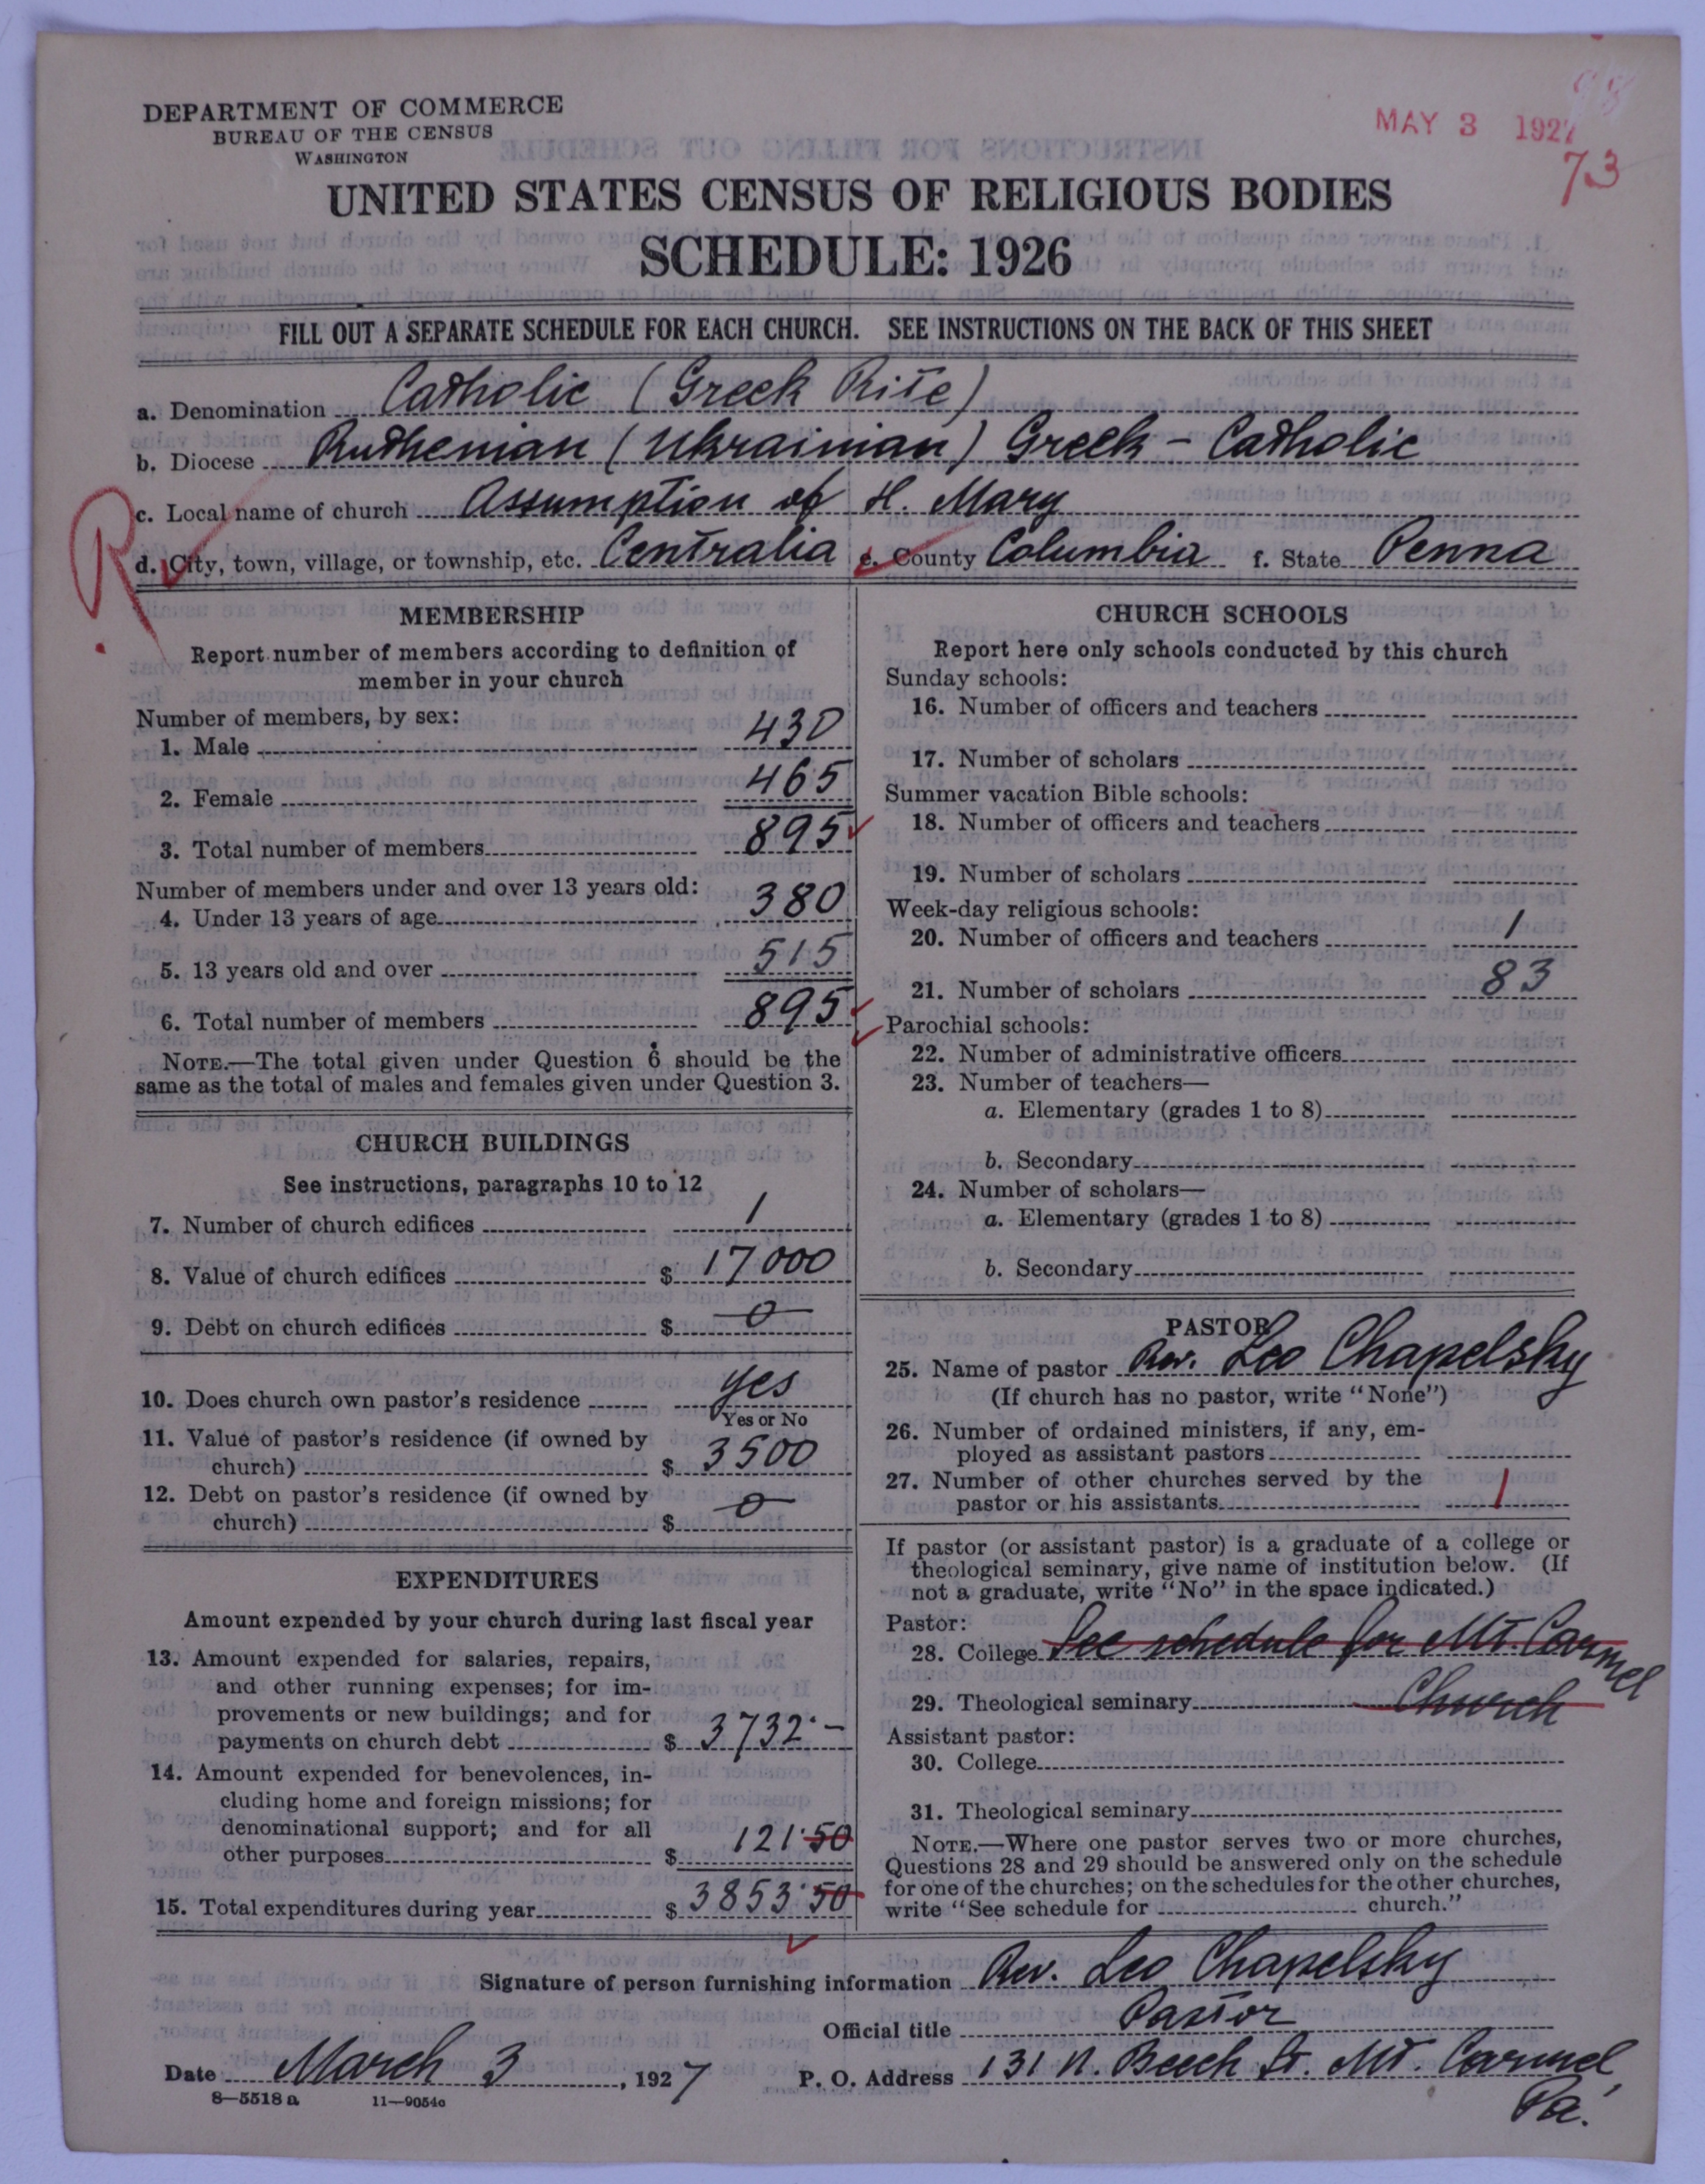 DEPARTMENT OF COMMERCE
BUREAU OF THE CENSUS
WASHINGTON
MAY 3 1927
73
UNITED STATES CENSUS OF RELIGIOUS BODIES
SCHEDULE: 1926
FILL OUT A SEPARATE SCHEDULE FOR EACH CHURCH. SEE INSTRUCTIONS ON THE BACK OF THIS SHEET
a. Denomination Catholic (Greek Rite)
b. Diocese Ruthenian (Ukrainian) Greek-Catholic
c. Local name of church Assumption of H. Mary
R
d. City, town, village, or township, etc. Centralia e. County Columbia f. State Penna
MEMBERSHIP
Report number of members according to definition of
member in your church
Number of members, by sex:
1. Male 430
2. Female 465
3. Total number of members 895
Number of members under and over 13 years old:
4. Under 13 years of age 380
5. 13 years old and over 515
6. Total number of members 895
NOTE.—The total given under Question 6 should be the
same as the total of males and females given under Question 3.
CHURCH BUILDINGS
See instructions, paragraphs 10 to 12
7. Number of church edifices 1
8. Value of church edifices $ 17000
9. Debt on church edifices $ 0
10. Does church own pastor's residence yes
Yes or No
11. Value of pastor's residence (if owned by
church) $ 3500
12. Debt on pastor's residence (if owned by
church) $ 0
EXPENDITURES
Amount expended by your church during last fiscal year
13. Amount expended for salaries, repairs,
and other running expenses; for im-
provements or new buildings; and for
payments on church debt $ 3732.-
14. Amount expended for benevolences, in-
cluding home and foreign missions; for
denominational support; and for all
other purposes $ 121.50
15. Total expenditures during year $ 3853.50
CHURCH SCHOOLS
Report here only schools conducted by this church
Sunday schools:
16. Number of officers and teachers
17. Number of scholars
Summer vacation Bible schools:
18. Number of officers and teachers
19. Number of scholars
Week-day religious schools:
20. Number of officers and teachers 1
21. Number of scholars 83
Parochial schools:
22. Number of administrative officers
23. Number of teachers—
a. Elementary (grades 1 to 8)
b. Secondary
24. Number of scholars—
a. Elementary (grades 1 to 8)
b. Secondary
PASTOR
25. Name of pastor Rev. Leo Chapelsky
(If church has no pastor, write "None")
26. Number of ordained ministers, if any, em-
ployed as assistant pastors
27. Number of other churches served by the
pastor or his assistants 1
If pastor (or assistant pastor) is a graduate of a college or
theological seminary, give name of institution below. (If
not a graduate, write "No" in the space indicated.)
Pastor:
28. College See schedule for Mt. Carmel
29. Theological seminary Church
Assistant pastor:
30. College
31. Theological seminary
NOTE.—Where one pastor serves two or more churches,
Questions 28 and 29 should be answered only on the schedule
for one of the churches; on the schedules for the other churches,
write "See schedule for church."
Signature of person furnishing information Rev. Leo Chapelsky
Official title Pastor
Date March 3, 1927 P. O. Address 131 N. Beech St. Mt. Carmel,
Pa.
8—5518 a 11—9054c